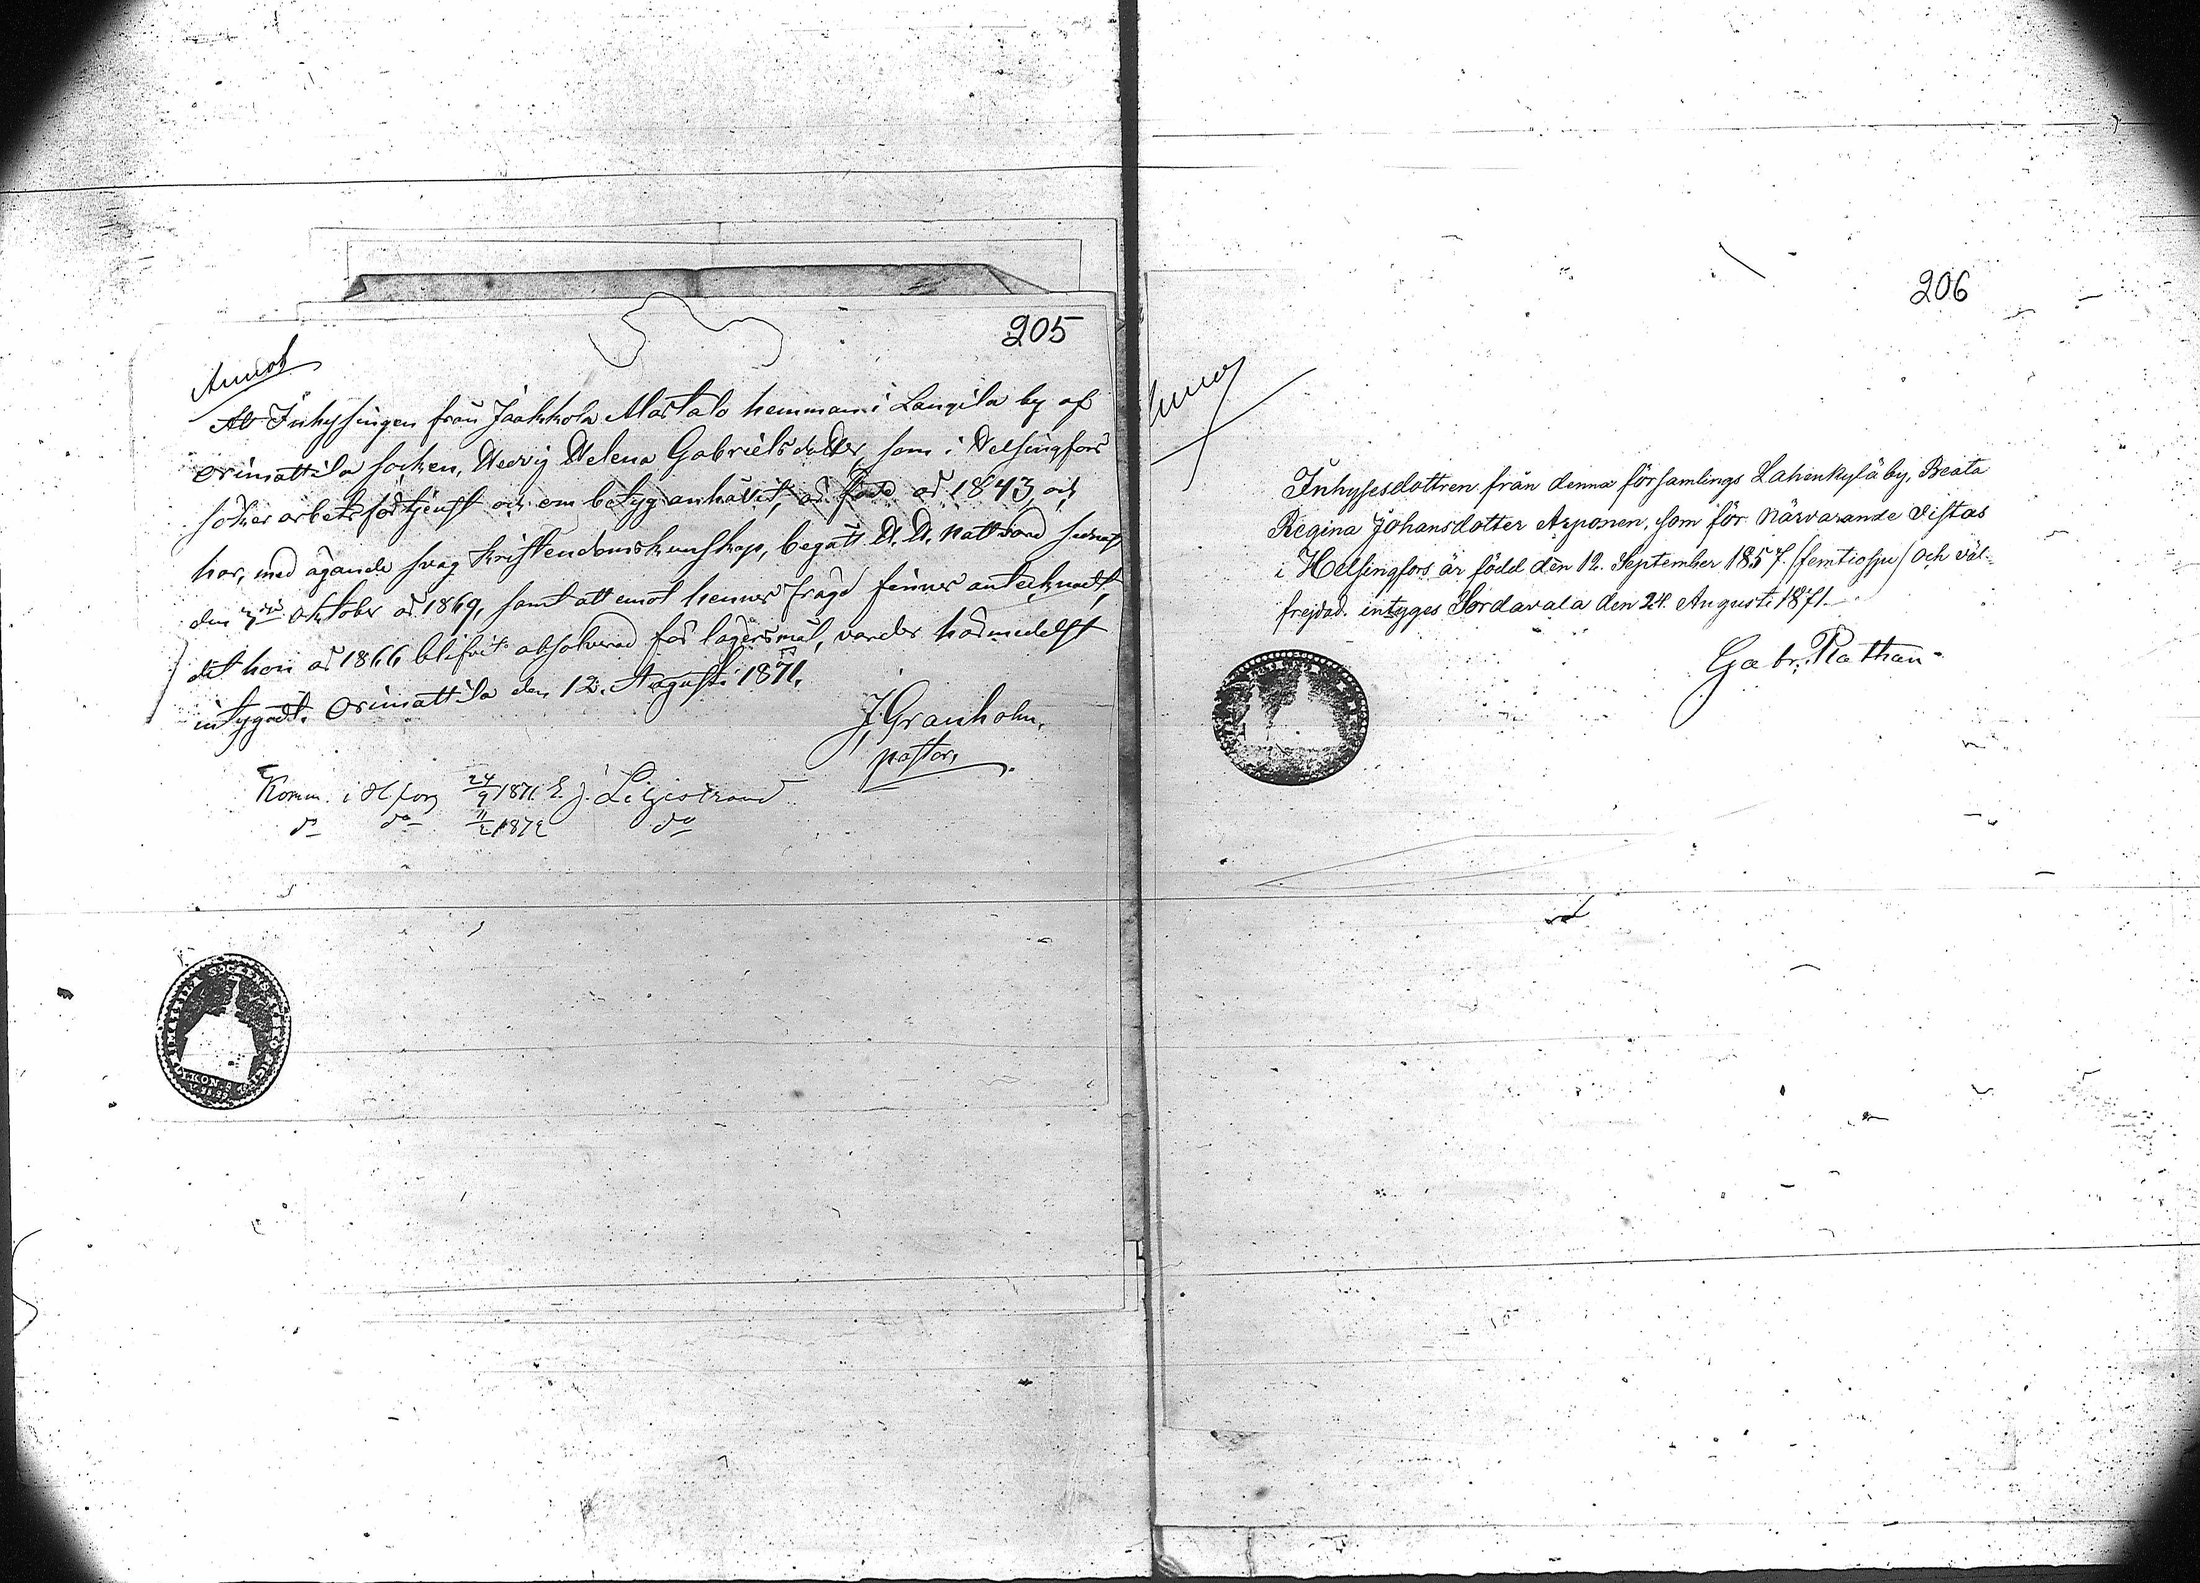 205
Annot
Att Inhysingen från Jaakkola Alastalo hemman i Langila by af
Orimattila socken, Hedvig Helena Gabrielsdotter, som i Helsingfors
söker arbetsförtjenst och om betyg anhållit, är född år 1843, och
har, med ägande svag kristendomskunskap, begått H. H. Nattvard senast
den 7de Oktober år 1869, samt att emot hennes frägd finnes antecknadt,
det hon år 1866 blifvit absolverad för lägersmål, varder härmedelst
intygadt. Orimattila den 12. Augusti 1871.
J. Granholm,
pastor.
Komm. i H:fors 24/9 1871 E. J.
do do 11/2 1872 do
206
Inhysesdottren från denna församlings Lahenkylä by, Beata
Regina Johansdotter Arponen, som för närvarande vistas
i Helsingfors är född den 12. September 1857. (femtiosju) och väl-
frejdad. intyges Sordavala den 24. Augusti 1871.
Gabr. Plathan